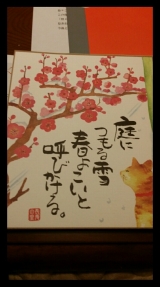 庭に
つもる雪
春よこいと
呼びかける。